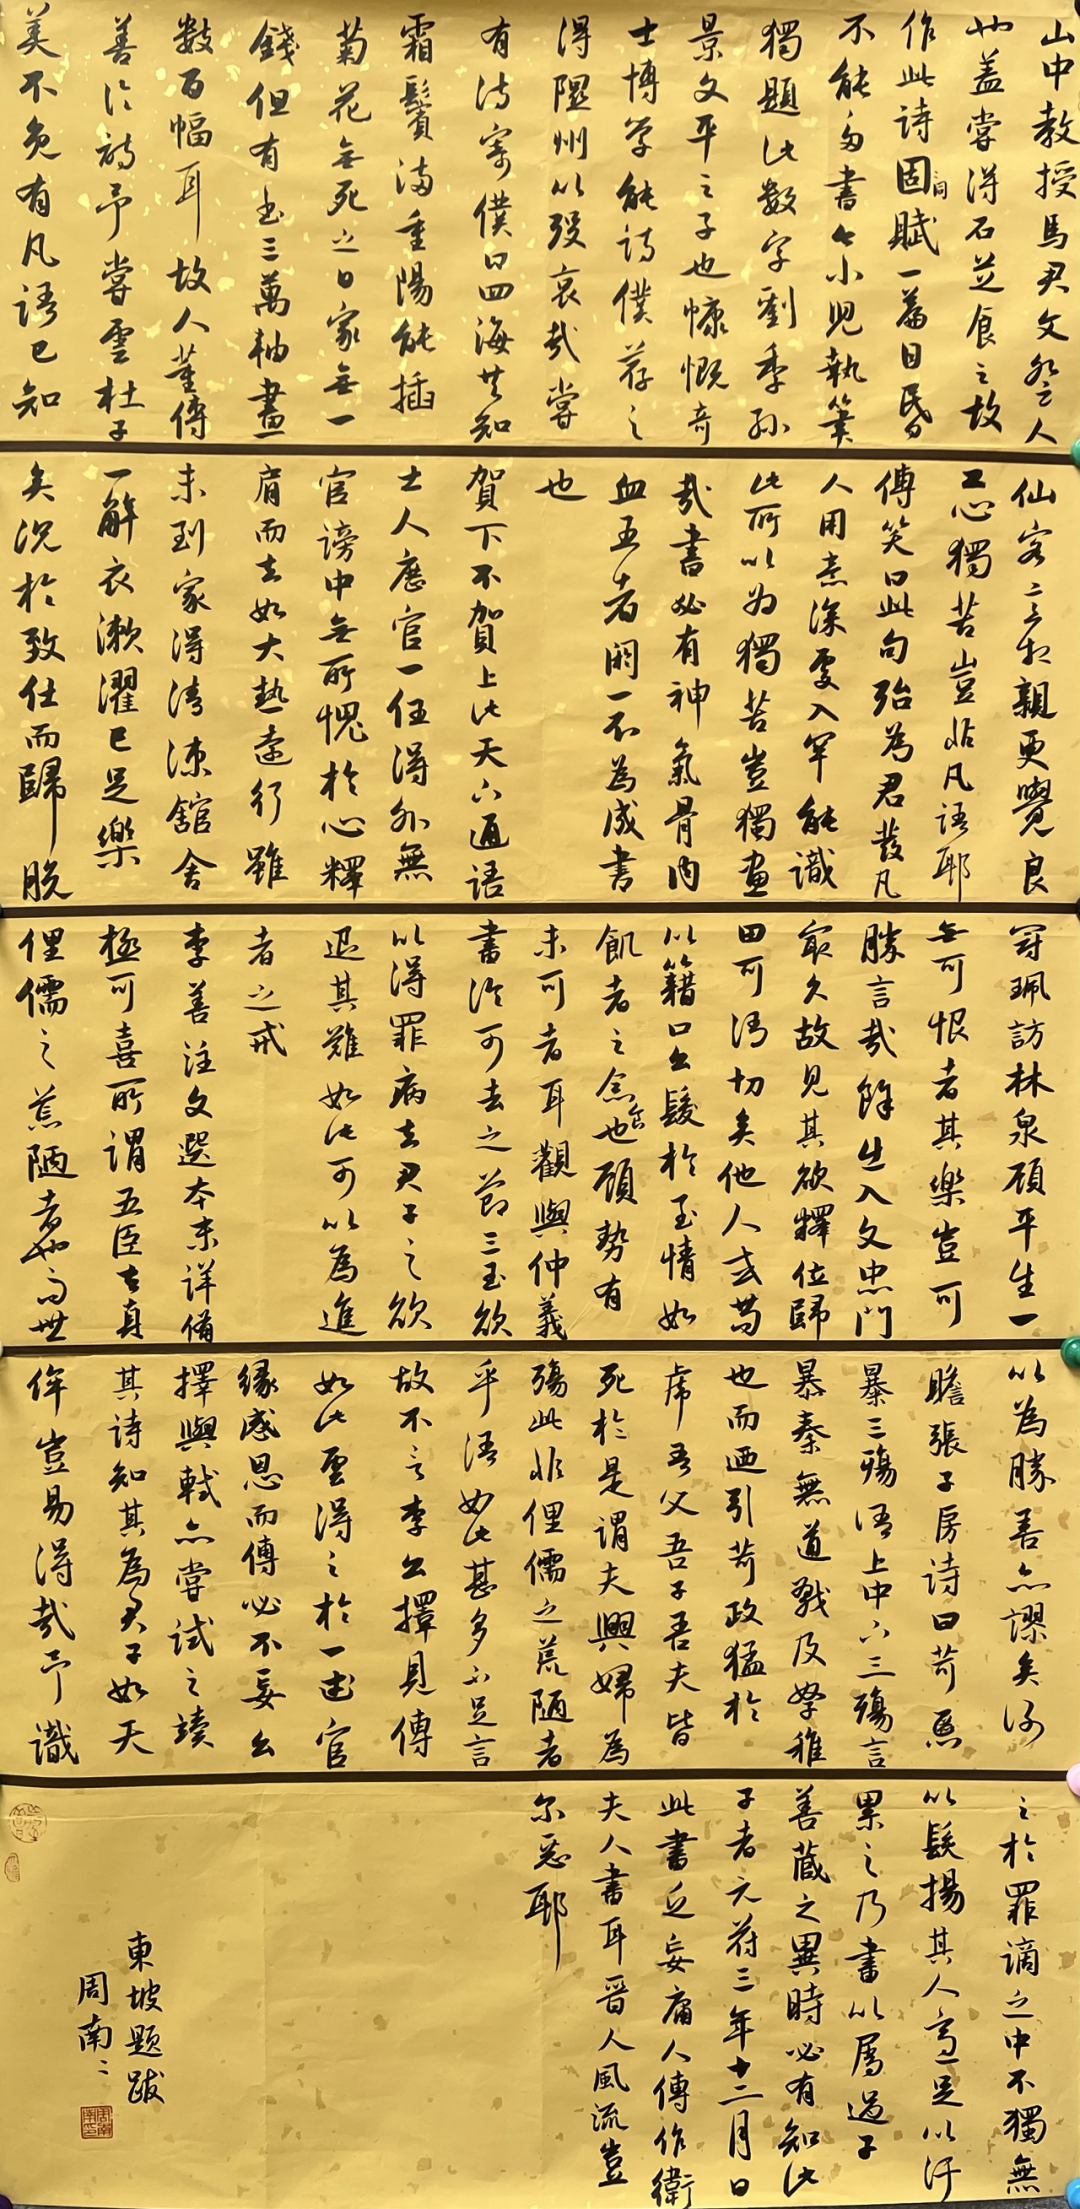 山中教授馬君文登人
也蓋嘗得石芝食之故
作此詩固同賦一篇目昏
不能多書令小兒執筆
獨題此數字劉季孫
景文平之子也慷慨奇
士博學能詩僕薦之
得隰州以歿哀哉嘗
有詩寄僕曰四海共知
霜鬢滿重陽能插
菊花無死之日家無一
錢但有書三萬軸畫
數百幅耳故人董傳
善論詩予嘗雲杜子
美不免有凡語已知
仙客意相親更覺良
工心獨苦豈非凡語耶
傳笑曰此句殆為君發凡
人用意深處人罕能識
此所以為獨苦豈獨畫
哉書必有神氣骨肉
血五者闕一不為成書
也
賀下不賀上此天下通語
士人歷官一任得外無
官謗中無所愧於心釋
肩而去如大熱遠行雖
未到家得清涼館舍
一解衣漱濯已足樂
矣況於致仕而歸脫
冠珮訪林泉顧平生一
無可恨者其樂豈可
勝言哉餘出入文忠門
最久故見其欲釋位歸
田可謂切矣他人或苟
以籍口公發於至情如
飢者之念食也顧勢有
未可者耳觀與仲義
書論可去之節三至欲
以得罪病去君子之欲
退其難如此可以為進
者之戒
李善注文選本末詳備
極可喜所謂五臣者真
俚儒之荒陋者也而世
以為勝善亦謬矣謝
瞻張子房詩曰苛慝
暴三殤謂上中下三殤言
暴秦無道戮及孥稚
也而廼引苛政猛於
虎吾父吾子吾夫皆
死於是謂夫與婦為
殤此非俚儒之荒陋者
乎謂如此甚多不足言
故不言李公擇見傳
如此雲得之於一書官
緣感恩而傳必不妄公
擇與軾亦嘗試之讀
其詩知其為君子如天
侔豈易得哉予識
之於罪謫之中不獨無
以髮揚其人適足以汙
累之乃書以屬過子
善藏之異時必有知此
子者元符三年十二月日
此書近妄庸人傳作衛
夫人書耳晉人風流豈
尔惡耶
東坡題跋
周南